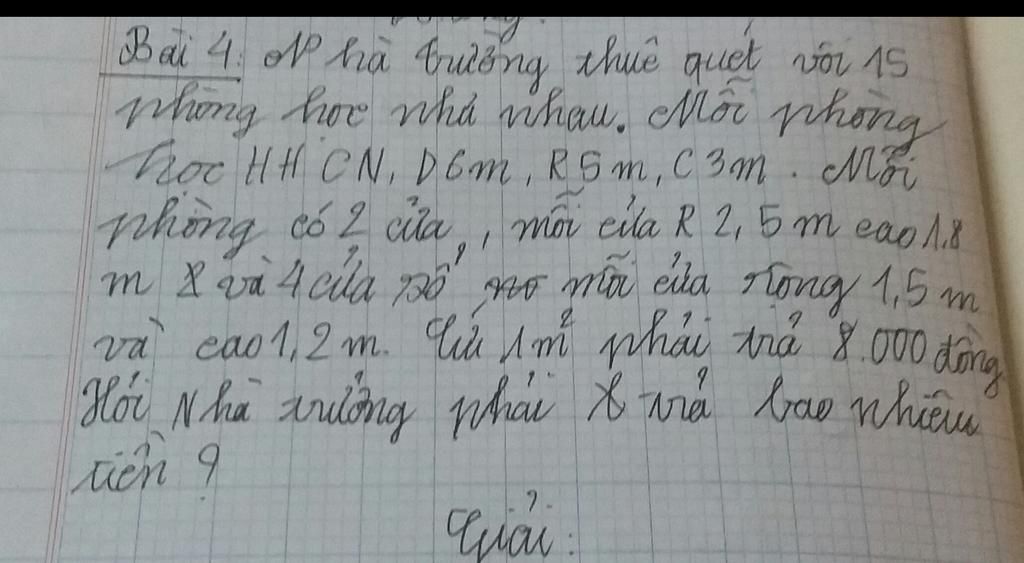 Bài 4: Nhà trường thuê quét vôi 15
phòng học nhá nhau. Mỗi phòng
học HHCN, D6m, R5m, C3m. Mỗi
phòng có 2 cửa, mỗi cửa R 2,5m cao 1,8
m và 4 cửa sổ mỗi cửa rộng 1,5m
và cao 1,2m. Cứ 1m² phải trả 8.000 đồng
Hỏi Nhà trường phải trả bao nhiêu
tiền?
Giải: